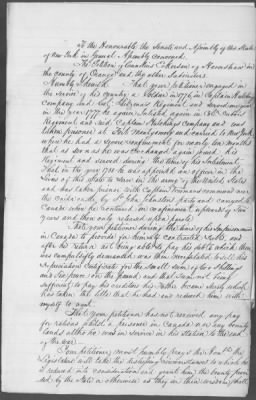 To the Honourable the Senate and Assembly of the State
of New York in General Assembly convened
The Petition of                of Haverstraw in
the County of Orange and the other Subscribers
Humbly Sheweth That your petitioner engaged in
the service of his country a Soldier in 1776, in Captain Hutchins
company and Col.          Regiment, and served
in the year 1777, he again Enlisted again in Col.
Regiment and said Captain Hutchings Company and was
taken prisoner at Fort Montgomery and carried to New York
where he had a severe confinement for nearly ten months
that as soon as he was exchanged again joined his
Regiment and served during the time of his Inlistment
That in the year 1780 he was appointed an officer in the
Lines of this State to serve in the army of the United States
and was taken prisoner with Captain          command near
the                by Sir John Johnstons party and carryed to
Canada where he continued in confinement upwards of two
years and then only released upon parole
That your petitioner during the time of his Imprisonment
in Canada to provide for himself contracted debts, and
after his return not being able to pay his debts which then
was                demanded was then                to sell his
Depreciation Certificate for the Small sum of two Shillings
and Six pence on the pound and that Sum not being
sufficient to pay his creditors his Father became surety which
has taken the little that he had and reduced him with
myself to want.
That your petitioner has not received any pay
for rations whilst a prisoner in Canada or any bounty
lands altho he was in service in his station to the end
of the war.
Your petitioner most humbly prays the Honble the
Legislature will take the distressing circumstances to which he
is reduced into consideration and grant him the bounty provi
ded by the State or otherwise as they in their wisdom shall